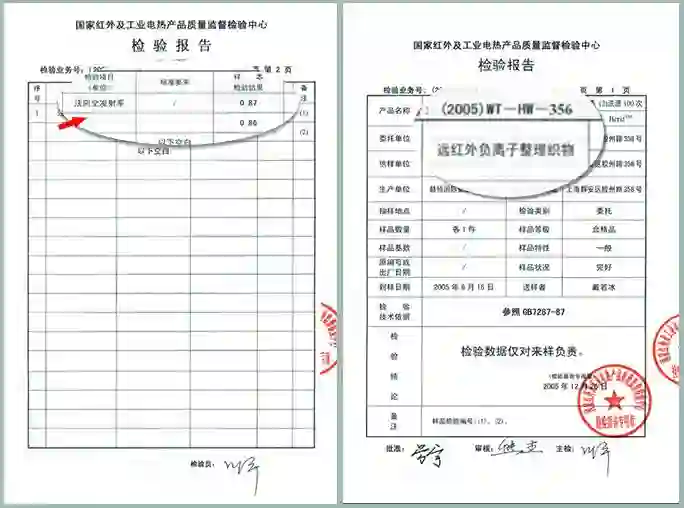 国家红外及工业电热产品质量监督检验中心
检验报告
检验业务号:(20
第 2 页
序号
检验项目
(单位)
标准要求
样 本
检验结果
备注
1
法向全发射率
/
0.87
(1)
0.86
(2)
以下空白
以下空白
检验员:
国家红外及工业电热产品质量监督检验中心
检验报告
检验业务号:
页 第 1 页
产品名称
(2005)WT-HW-356
(2)洗涤 100次
远红外负离子整理织物
委托单位
胶州路 358号
生产单位
上海静安区胶州路 358号
抽样地点
/
检验类别
委托
样品数量
各1件
样品等级
合格品
样品基数
/
样品特性
一般
原编号或
出厂日期
/
样品状况
完好
到样日期
2005年 8月 18日
送样者
戴若冰
检 验
技术依据
参照 GB7287-87
检验结论
检验数据仅对来样负责。
(检验报告专用章)
2005年 12月 26日
备注
样品检验编号:(1)、(2)。
批准:
审核:
主检: